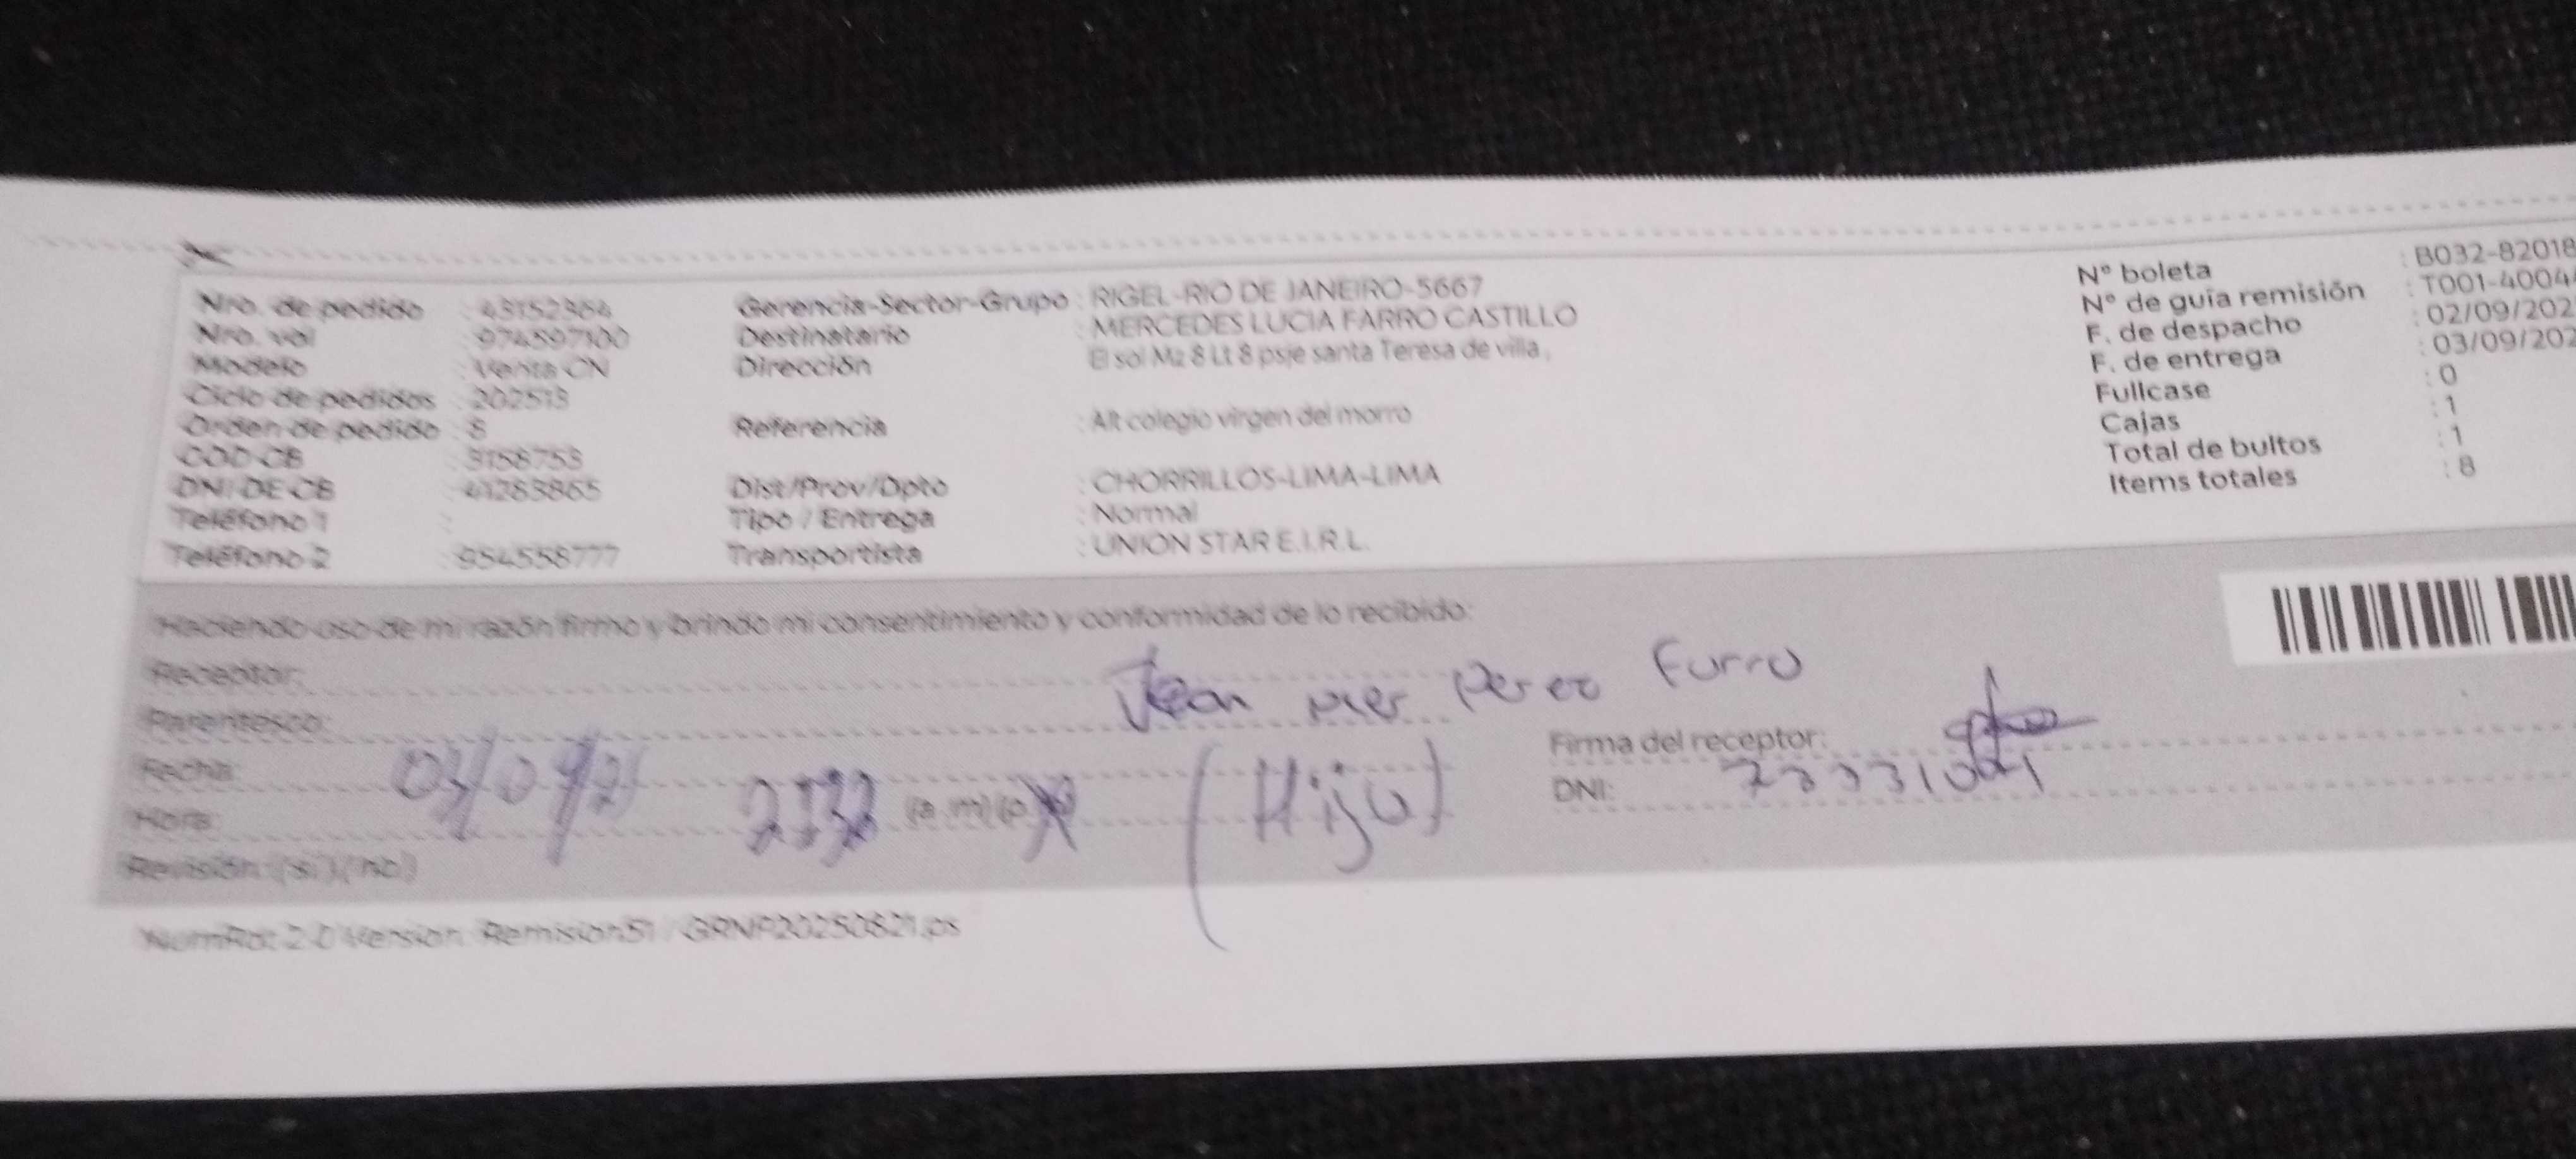 Nro. de pedido : 43152364
Nro. vol : 974597100
Modelo : Venta CN
Ciclo de pedidos : 202513
Orden de pedido : 8
COD CB : 3158753
DNI DE CB : 41283865
Teléfono 1 :
Teléfono 2 : 954558777
Gerencia-Sector-Grupo : RIGEL-RIO DE JANEIRO-5667
Destinatario : MERCEDES LUCIA FARRO CASTILLO
Dirección El sol Mz 8 Lt 8 psje santa Teresa de villa ,
Referencia : Alt colegio virgen del morro
Dist/Prov/Dpto : CHORRILLOS-LIMA-LIMA
Tipo / Entrega : Normal
Transportista : UNION STAR E.I.R.L.
N° boleta : B032-82018
N° de guía remisión : T001-4004
F. de despacho : 02/09/202
F. de entrega : 03/09/202
Fullcase : 0
Cajas : 1
Total de bultos : 1
Items totales : 8
Haciendo uso de mi razón firmo y brindo mi consentimiento y conformidad de lo recibido:
Receptor: Jean pier Perez Farro
Parentesco: (Hijo)
Fecha: 03/09/2
Hora: (a.m)
Revisión: (si) (no)
Firma del receptor:
DNI:
Version: Remision51 / GRNP20250821.ps